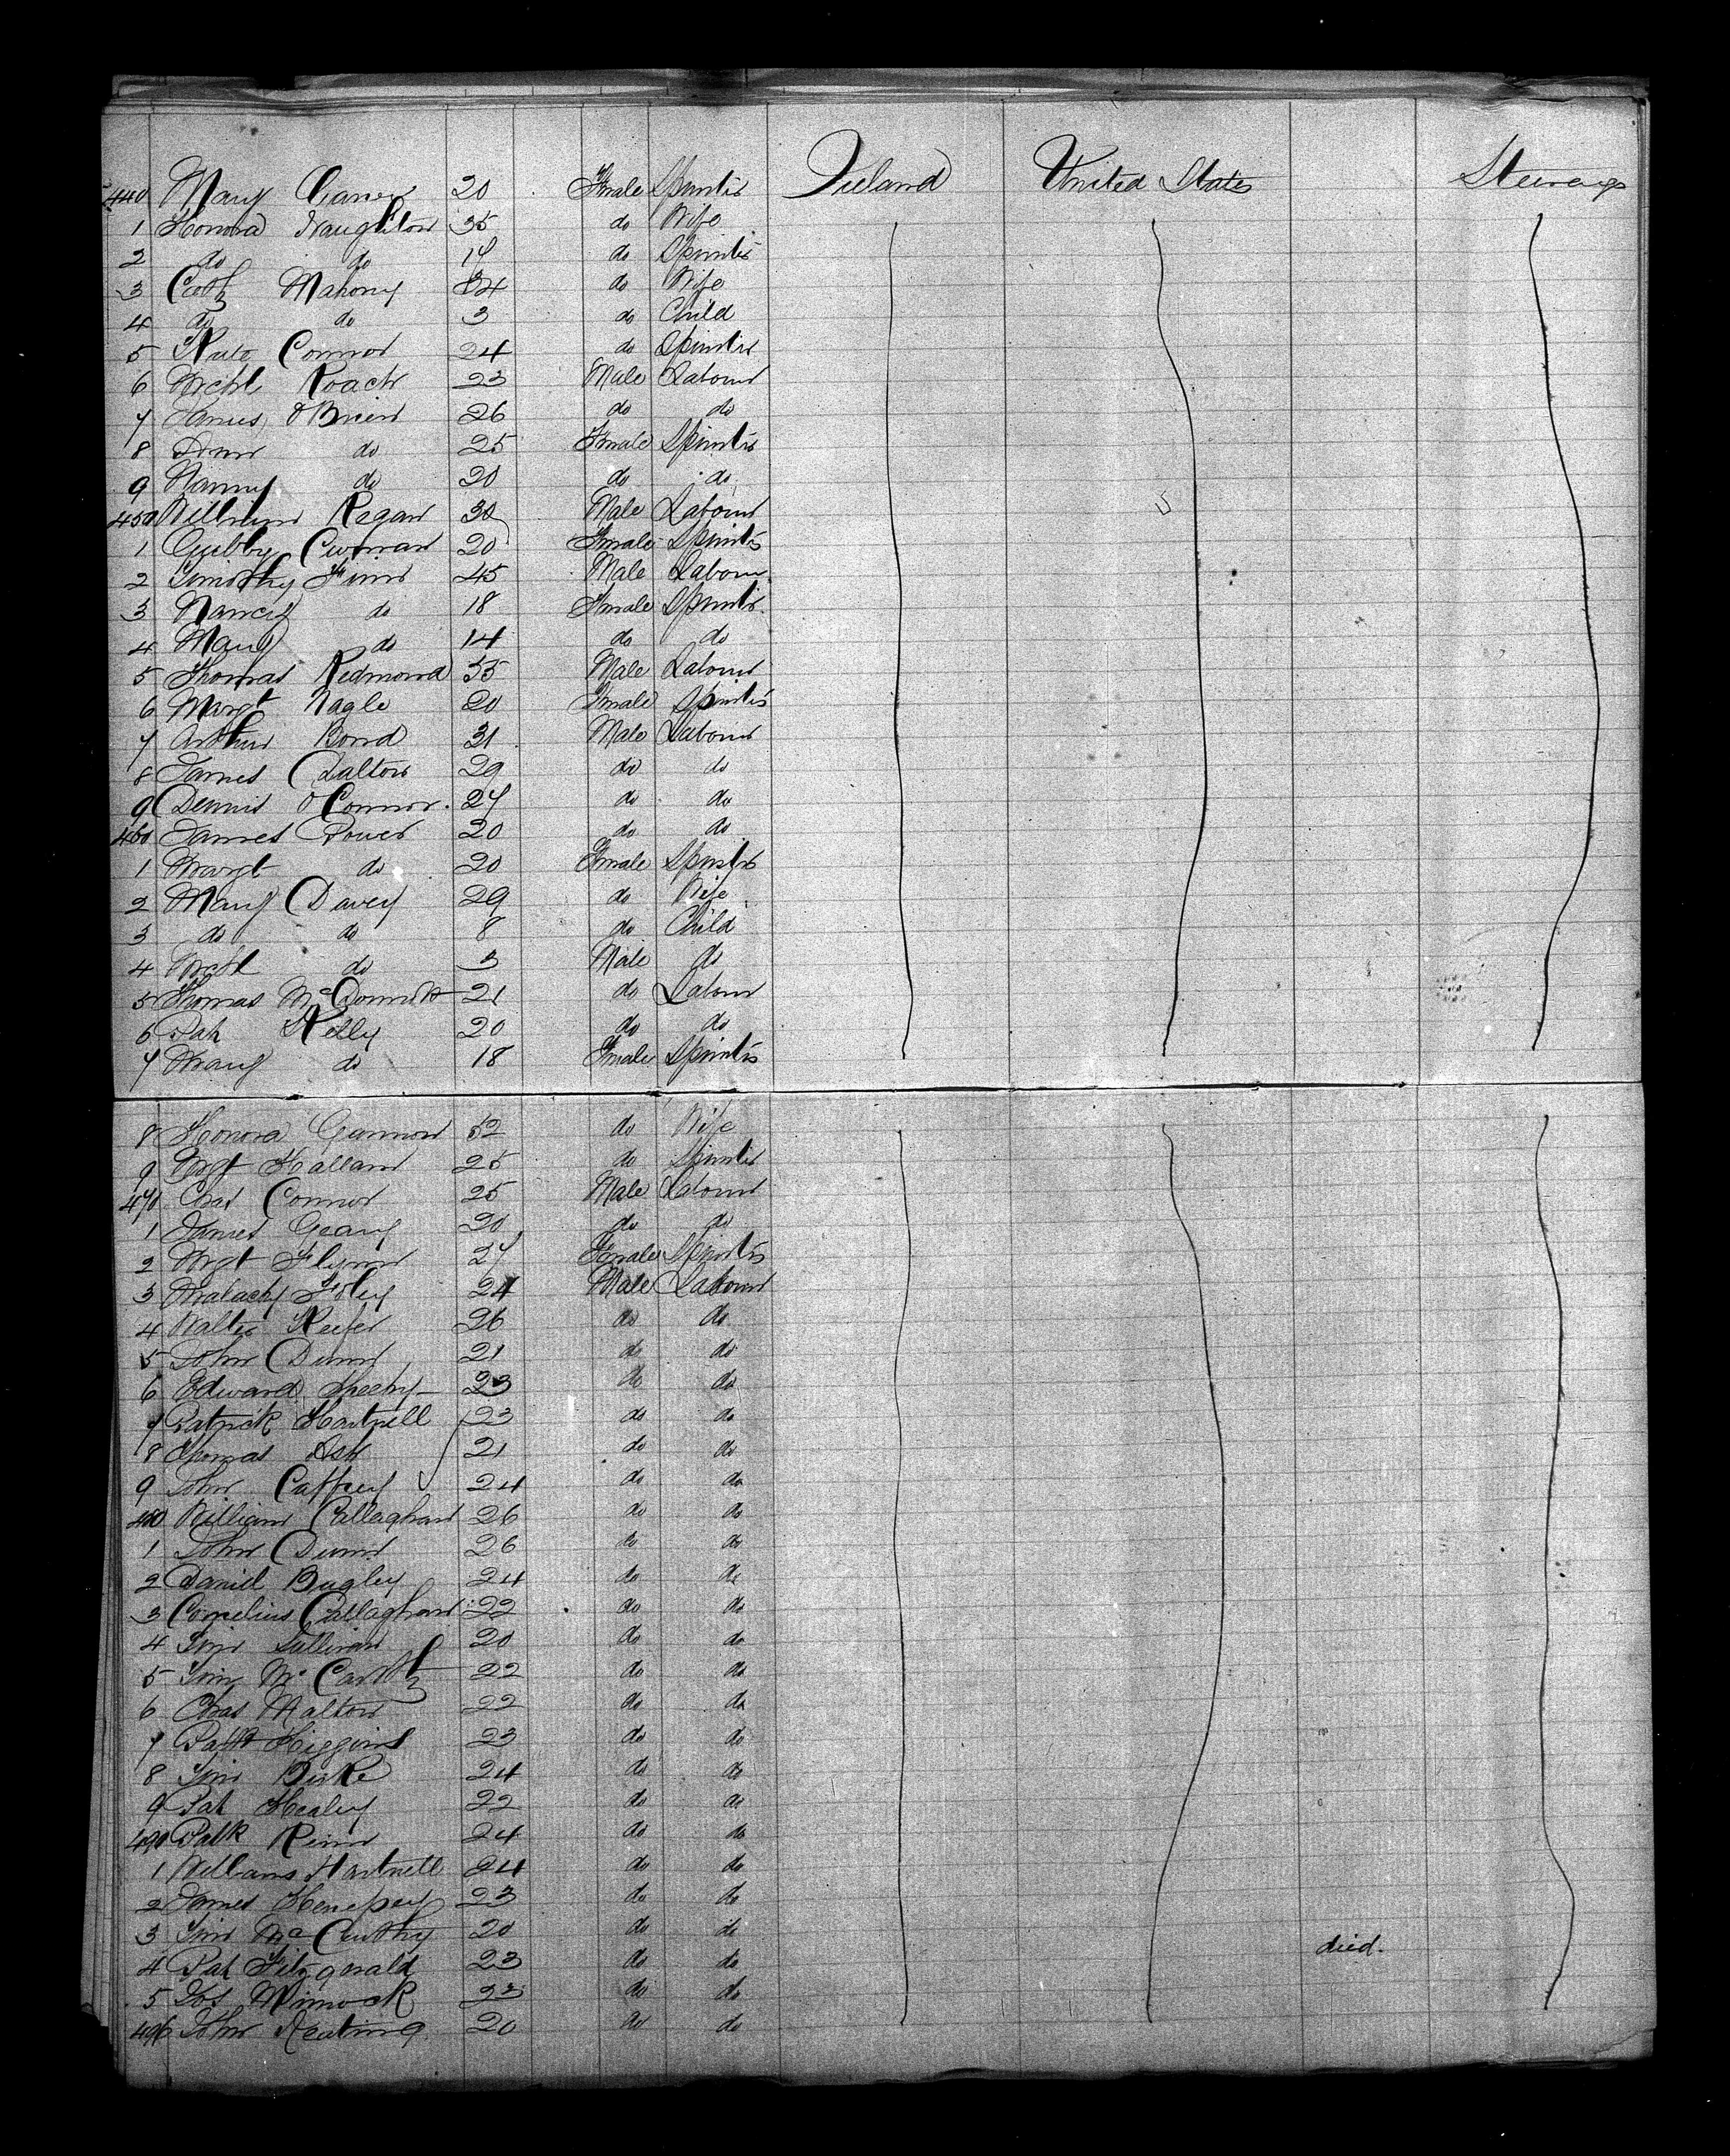 440 Mary 20 Female Spinster Ireland United States Steerage
1 Honora Naughton 35 do Wife
2 do do 17 do Spinster
3 Cath Mahony 34 do Wife
4 do do 3 do Child
5 Kate Connor 24 do Spinster
6 Michl Roach 23 Male Labour
7 James O'Brien 26 do do
8 do 25 Female Spinster
9 Nanny do 20 do do
450 William Regan 30 Male Labour
1 20 Female Spinster
2 Timothy Finn 45 Male Labour
3 Nancy do 18 Female Spinster
4 Mary do 14 do do
5 Thomas Redmond 35 Male Labour
6 Margt Nagle 20 Female Spinster
7 Arthur Bond 31 Male Labour
8 James Dalton 29 do do
9 Dennis O'Connor 27 do do
460 James Power 20 do do
1 Margt do 20 Female Spinster
2 Mary Davey 29 do Wife
3 do do 8 do Child
4 Michl do 3 Male do
5 Thomas 21 do Labour
6 Pat Kelly 20 do do
7 Mary do 18 Female Spinster
8 Honora Gannon 32 do Wife
9 Mgt 25 do Spinster
470 Chas Connor 25 Male Labour
1 James Geary 20 do do
2 Mgt Flynn 27 Female Spinster
3 Malachy Foley 24 Male Labour
4 Walter 26 do do
5 John Dunn 21 do do
6 Edward Sheehy 23 do do
7 Patrick Hartnell 23 do do
8 Thomas Ash 21 do do
9 John Caffrey 24 do do
480 William Callaghan 26 do do
1 John Dunn 26 do do
2 Daniel Bugley 24 do do
3 Cornelius Callaghan 22 do do
4 Tim Sullivan 20 do do
5 Tim McCarthy 22 do do
6 Chas Malton 22 do do
7 Higgins 23 do do
8 Tim Burke 24 do do
9 Pat Healey 22 do do
490 Patk 24 do do
1 William Hartnell 24 do do
2 James 23 do do
3 Tim McCarthy 20 do do
4 Pat Fitzgerald 23 do do died.
5 23 do do
496 John Keating 20 do do